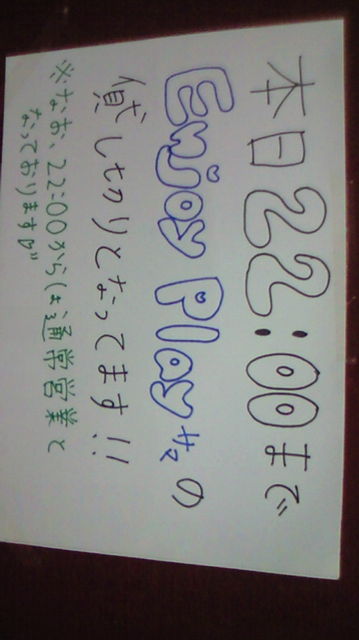 本日22:00まで
Enjoy Playサマの
貸しきりとなってます!!
※なお、22:00からは通常営業と
なっておりますm